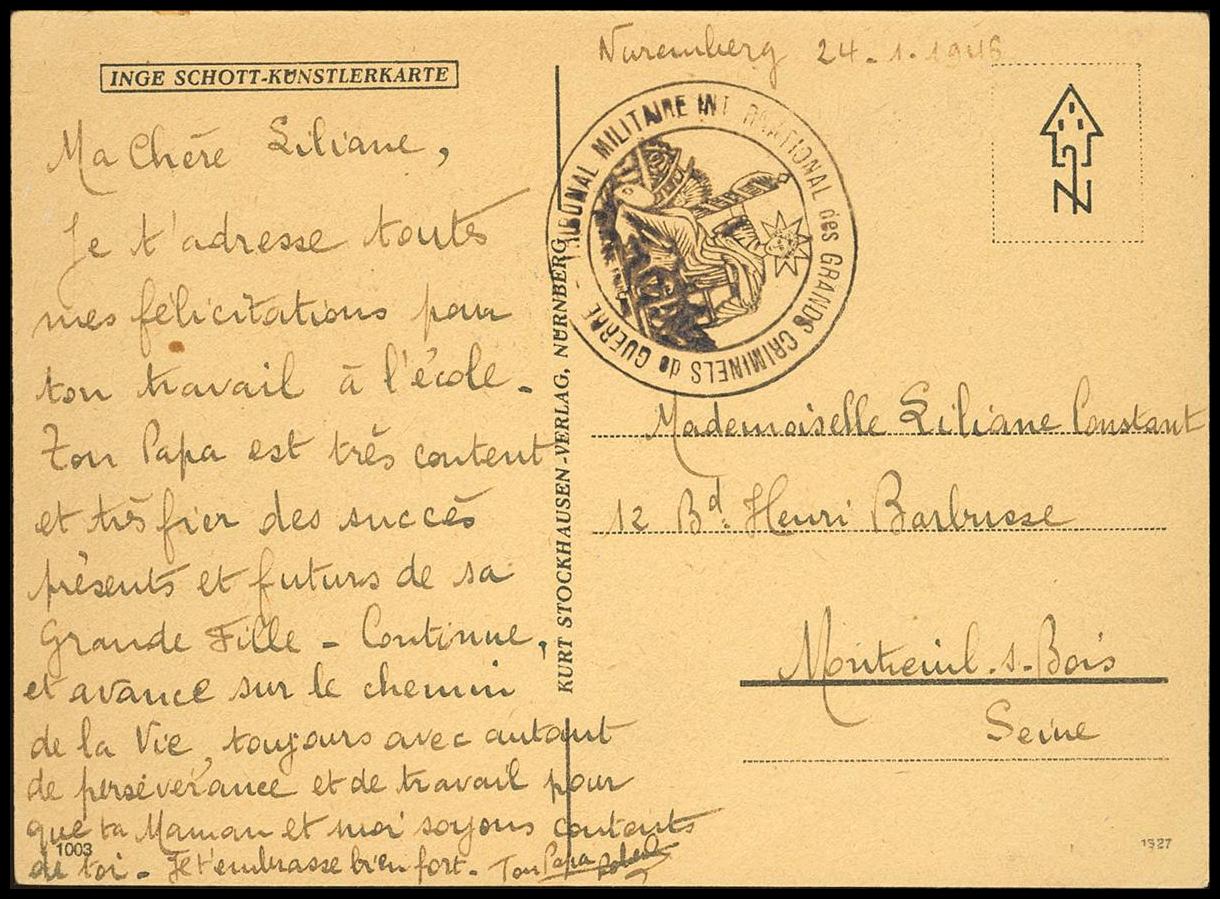 INGE SCHOTT-KÜNSTLERKARTE
Nuremberg 24-1-1946
Ma Chère Liliane,
Je t'adresse toutes
mes félicitations pour
ton travail à l'école-
Ton Papa est très content
et très fier des succès
présents et futurs de sa
Grande Fille - Continue,
et avance sur le chemin
de la Vie, toujours avec autant
de persévérance et de travail pour
que ta Maman et moi soyons contents
de toi - Je t'embrasse bien fort - Ton Papa
1003
KURT STOCKHAUSEN-VERLAG, NÜRNBERG
TRIBUNAL MILITAIRE INT RNATIONAL des GRANDS CRIMINELS de GUERRE -
N
Mademoiselle Liliane Constant
12 Bd. Henri Barbusse
Montreuil-s-Bois
Seine
1327